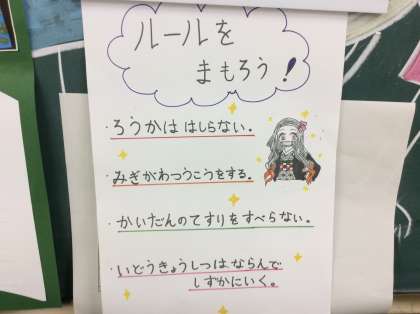 ルールを
まもろう!
・ろうかは はしらない。
・みぎがわつうこうをする。
・かいだんのてすりをすべらない。
・いどうきょうしつは ならんで
しずかにいく。